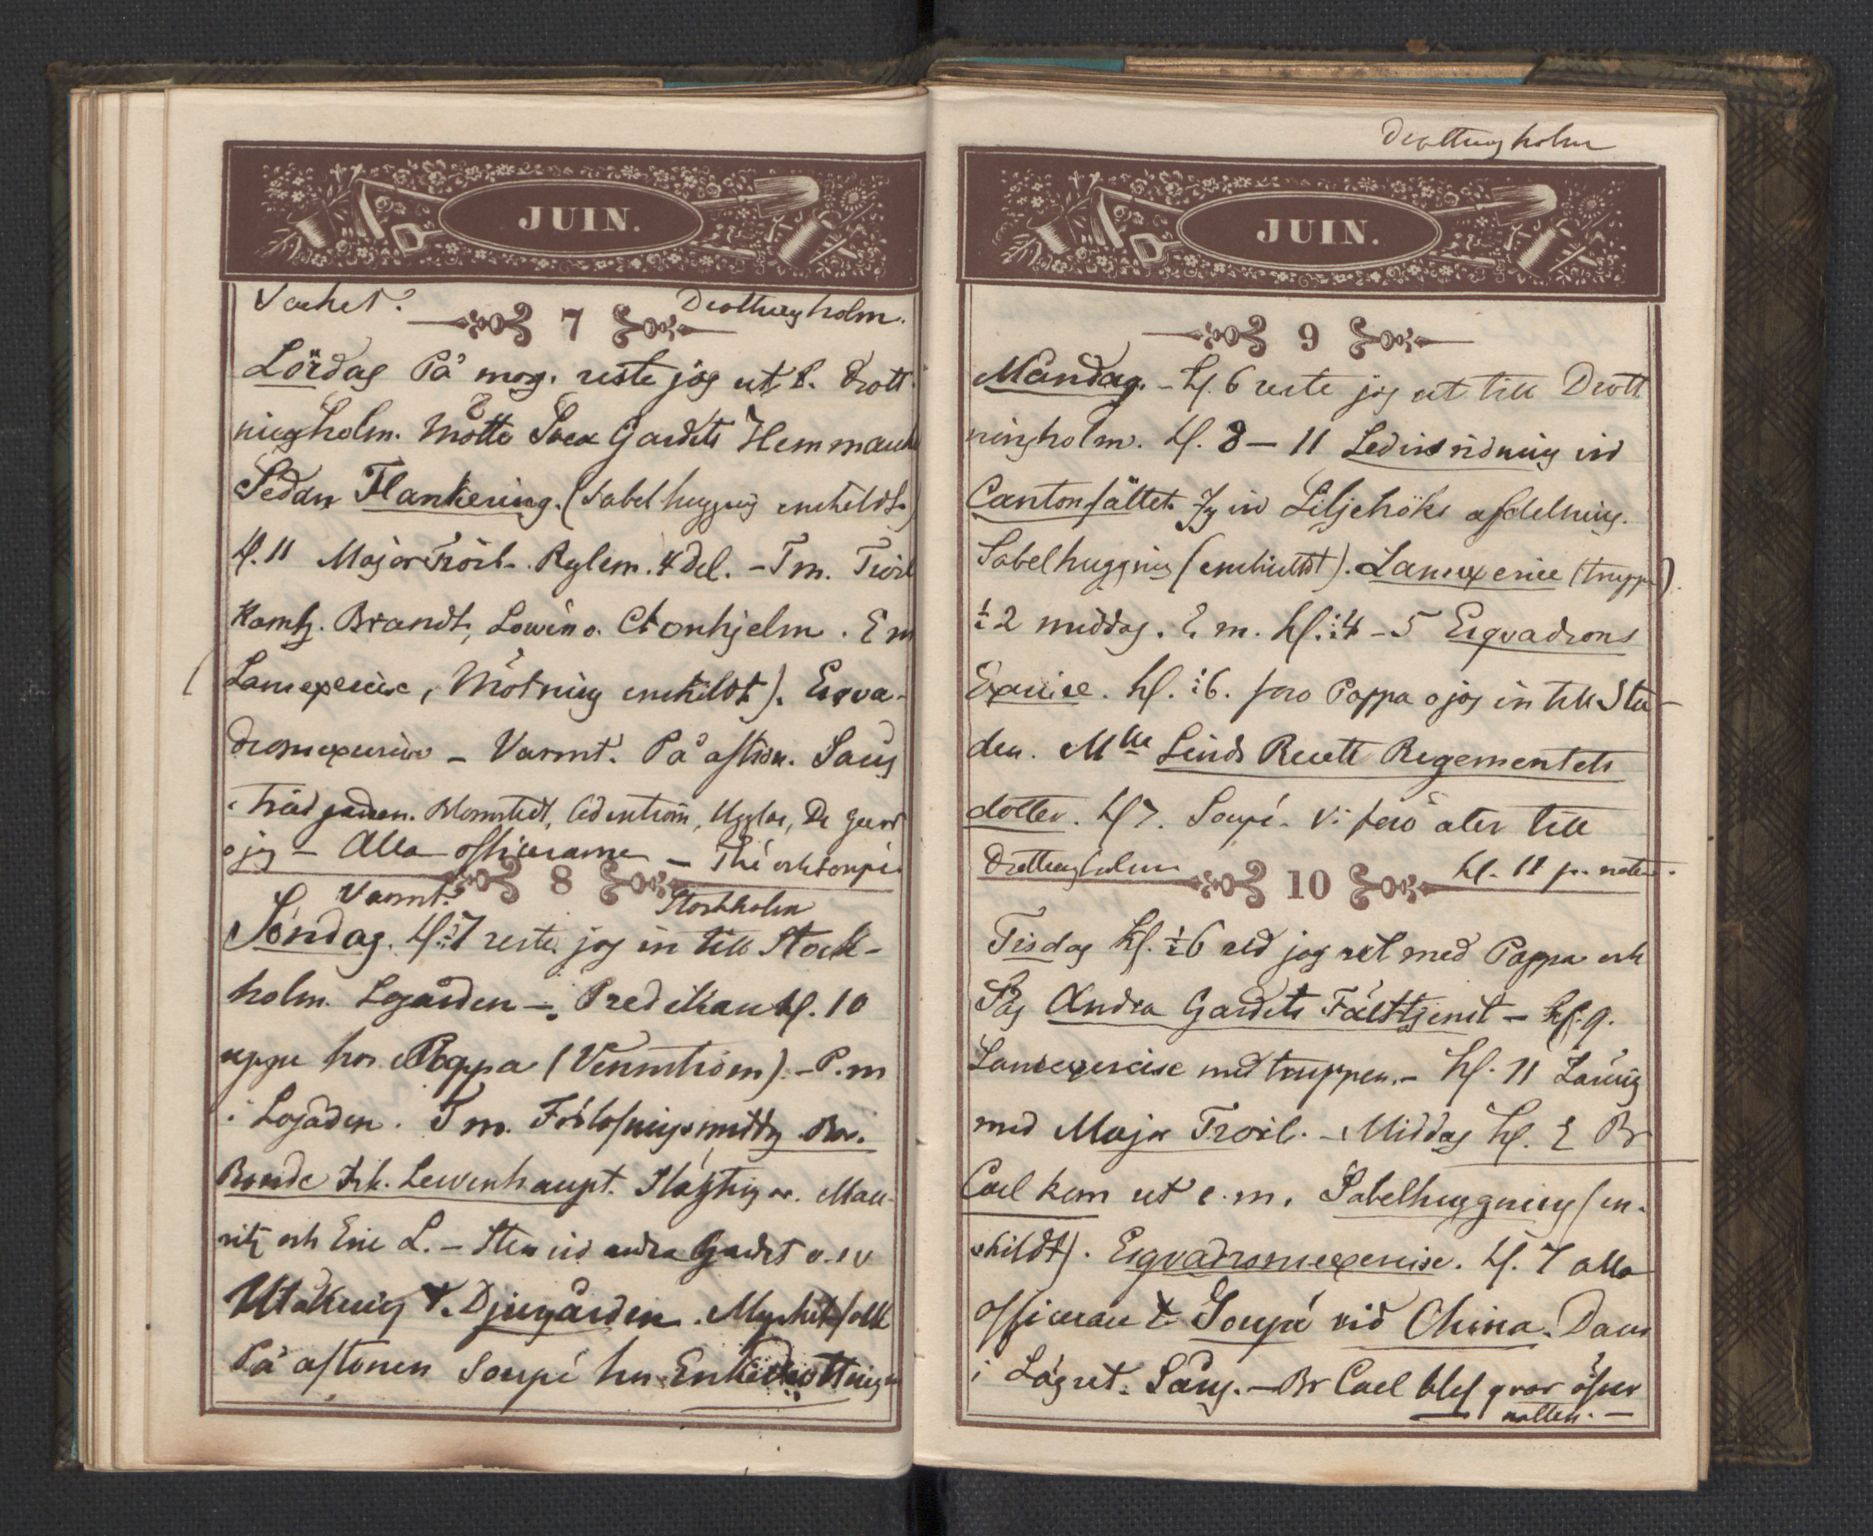 JUIN.
Vackert. Drottningholm.
7
Lördag På morg. reste jag ut t. Drott-
ningholm. Mötte Svea Gardets Hemmarch
Sedan Flankering. (Sabelhuggnig enskildt)
kl. 11 Major Troil. Rylem. 4 del. - F m. Troil
Kamhz. Brandt, Lowen o. Cronhjelm. E m
(Lansexercise, Mötning enskildt). Esqva-
dronsexercise - Varmt. På aftson. Sång
i trädgården. Blomstedt, Cederström, Ugglas, De Geer
o jag - Alla officerarne - Thé och soupé.
8
Varmt. Stockholm
Söndag. kl. 1/2 7 reste jag in till Stock-
holm. Logården -. Predikan kl. 10
uppe hos Pappa (Vennström). - P. m
i Logården. F m. Förlofningsmiddg
Bonde Frk. Lewenhaupt. Mau-
ritz och Eric L. - Sten vid andra Gardet
Utåkning t. Djurgården. Mycket folk
På aftonen Soupé hos Enkedrottningen
Drottningholm
JUIN.
9
Måndag. - kl. 6 reste jag ut till Drott
ningholm. kl. 8 - 11 Ledins ridning vid
Cantonfältet. Jg vid Liljehöks afdelning.
Sabelhuggnig (enskildt). Lansexercice (trupp)
1/2 2 middag. E. m. kl. 1/2 4 - 5 Esqvadrons
Exercice. kl. 1/2 6. foro Pappa o jag in till Sta-
den. Mlle Linds Recett Regementets
dotter. kl 7. Soupé. Vi foro åter till
Drottningholm kl. 11 p. natten.
10
Tisdag kl. 1/2 6 red jag ut med Pappa och
Såg Andra Gardets Fälttjenst - kl. 9.
Lansexercise med truppen. - kl. 11 Läsnig
med Major Troil. - Middag kl. 2 Br
Carl kom ut e. m. Sabelhuggning (en-
skildt). Esqvadronsexercise. kl. 7 alla
officerare t. Soupé vid China. Dans
i Lägret. Sång. - Br Carl blef qvar öfver
natten. -